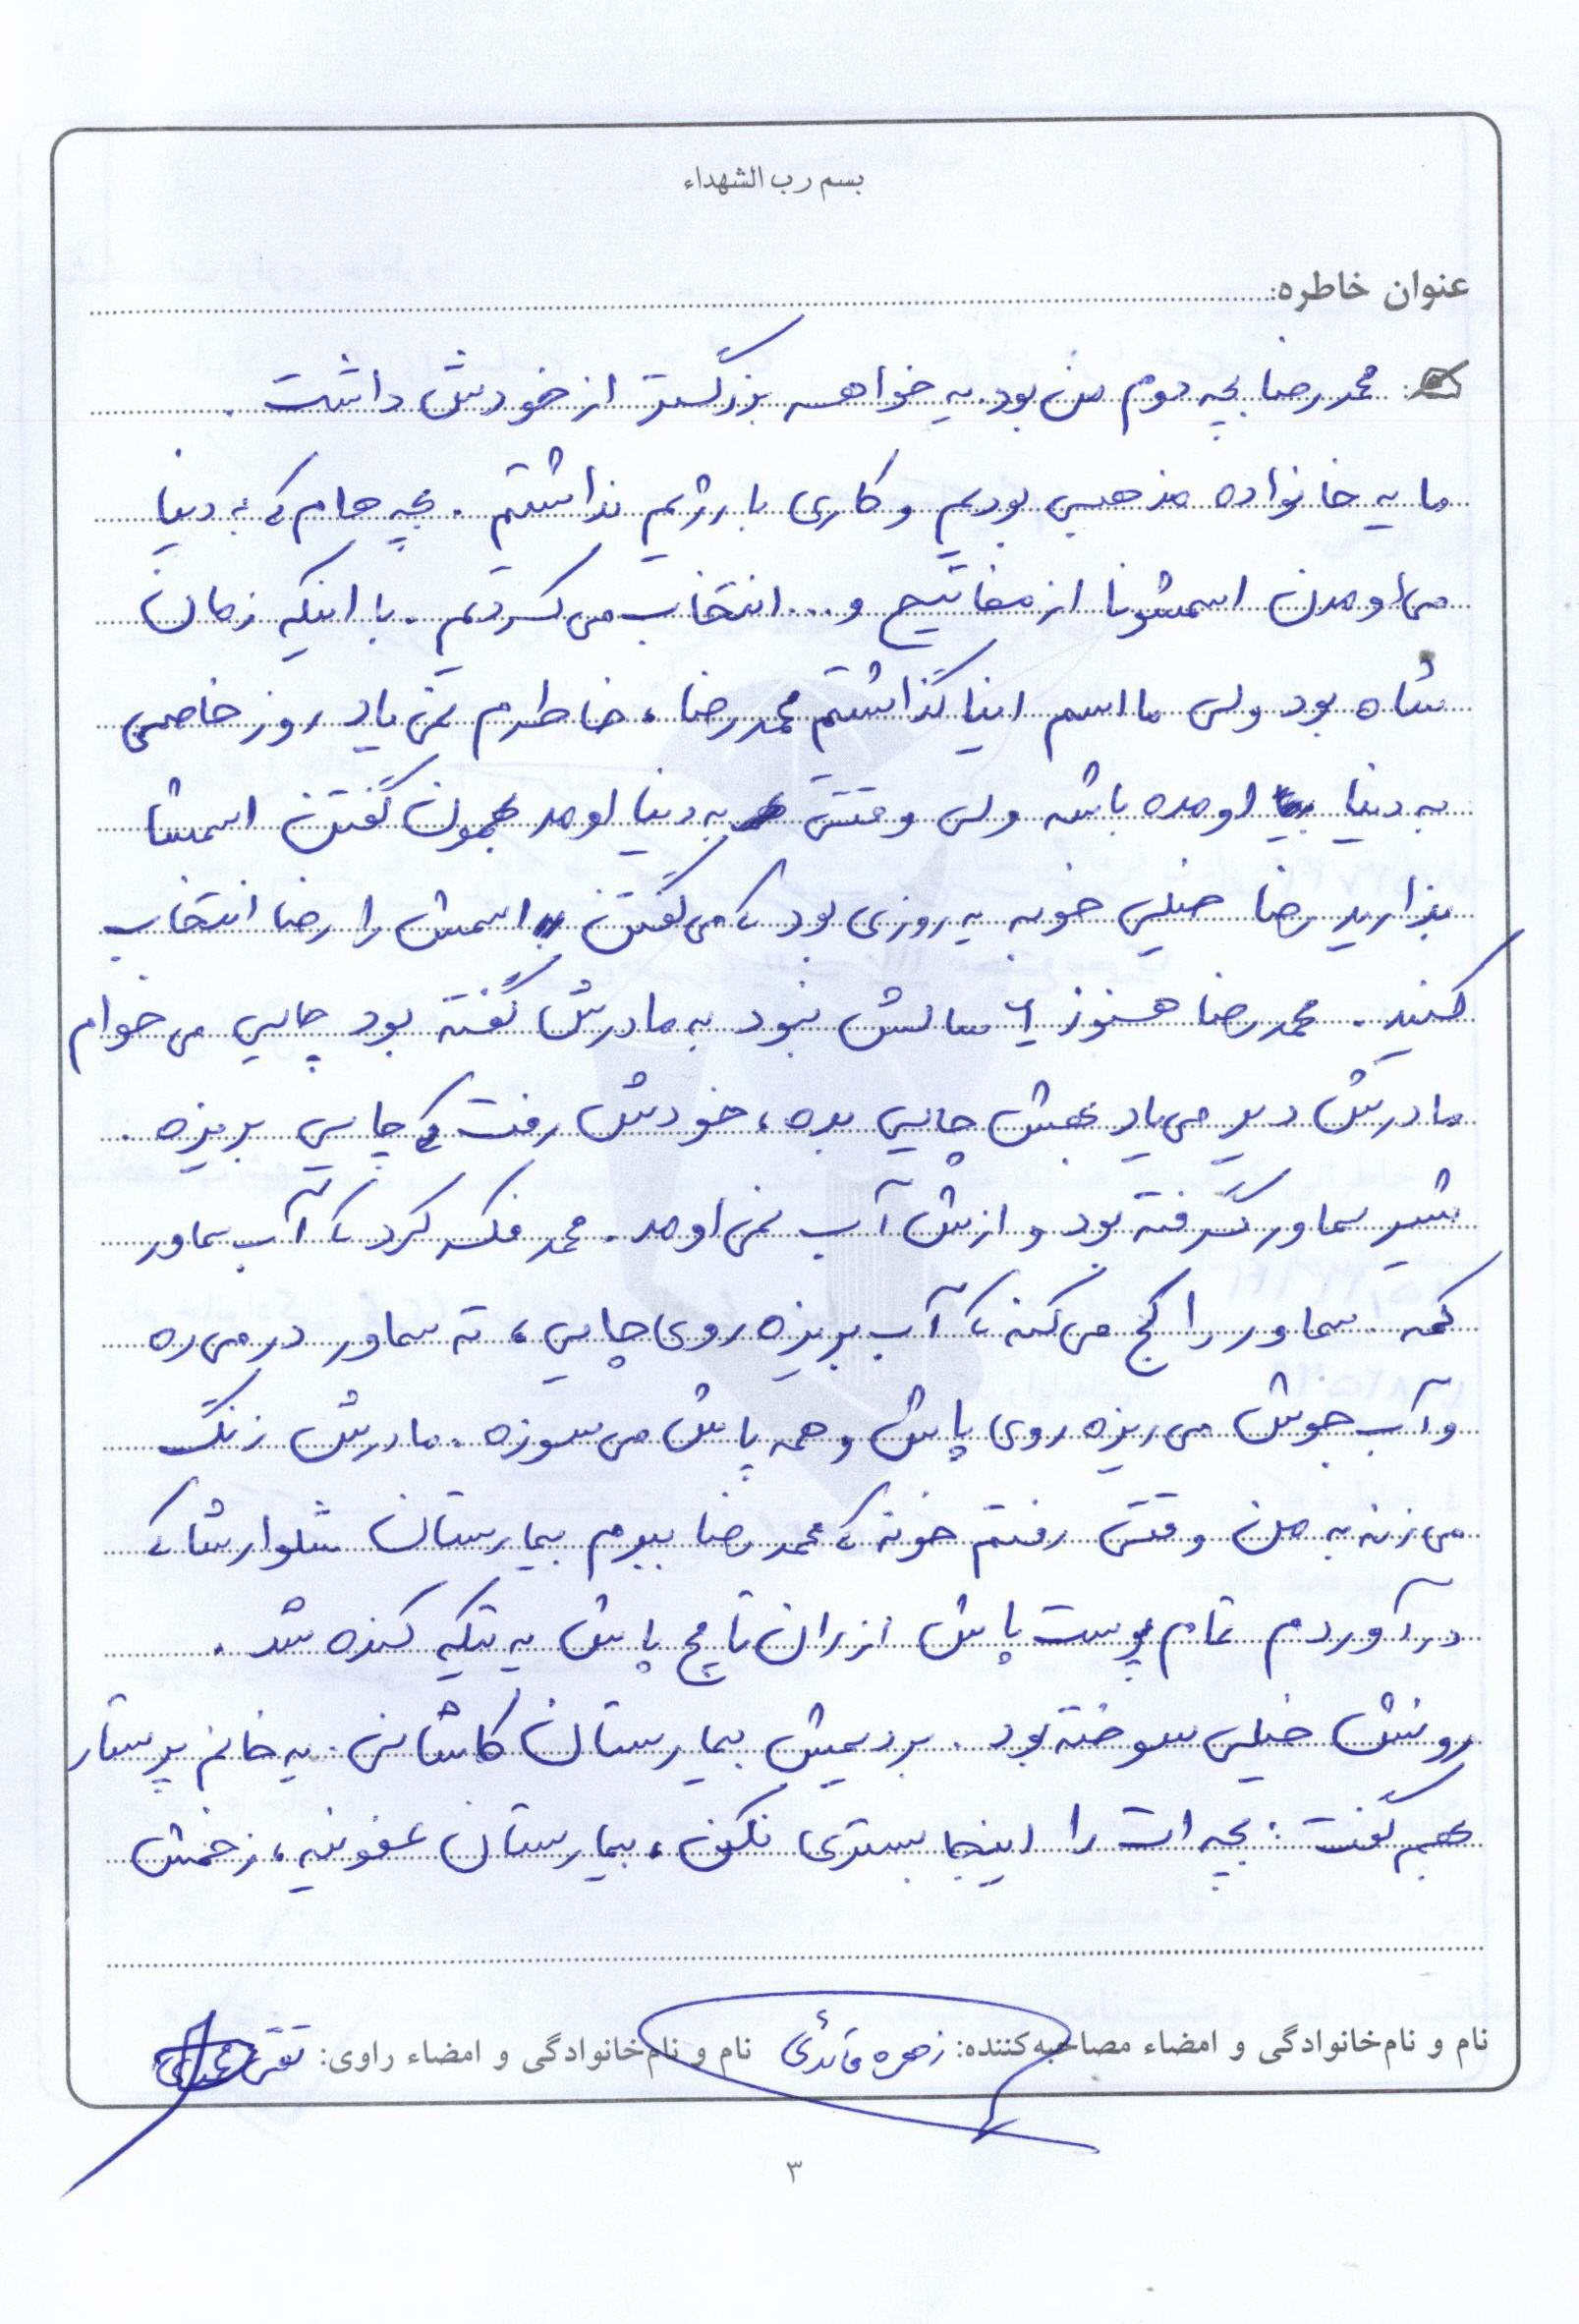 بسم رب الشهداء
عنوان خاطره:
محمدرضا بچه دوم من بود. یه خواهر بزرگتر از خودش داشت.
ما یه خانواده مذهبی بودیم و کاری با رژیم نداشتیم. بچه هام که به دنیا
می اومدن اسمشونا از مفاتیح و... انتخاب می کردیم. با اینکه زمان
شاه بود ولی ما اسم اینا گذاشتیم محمدرضا، خاطرم نمی یاد روز خاصی
به دنیا اومده باشه ولی وقتی به دنیا اومد بهمون گفتن اسمشا
بذارید رضا خیلی خوبه یه روزی بود که می گفتن اسمش را رضا انتخاب
کنید. محمدرضا هنوز سالش نبود به مادرش گفته بود چایی می خوام
مادرش دیر می یاد بهش چایی بده، خودش رفت که چایی بریزه.
شیر سماور گرفته بود و ازش آب نمی اومد. محمد فکر کرد که آب سماور
کمه. سماور را کج می کنه که آب بریزه روی چایی، ته سماور در می ره
و آب جوش می ریزه روی پاش و همه پاش می سوزه. مادرش زنگ
می زنه به من وقتی رفتم خونه که محمدرضا ببرم بیمارستان شلوارشا که
درآوردم تمام پوست پاش از ران تا مچ پاش یه تیکه کنده شد.
رونش خیلی سوخته بود. بردیمش بیمارستان کاشانی. یه خانم پرستار
بهم گفت: بچه ات را اینجا بستری نکن، بیمارستان عفونیه، زخمش
نام و نام‌خانوادگی و امضاء مصاحبه‌کننده: زهره قائدی نام و نام‌خانوادگی و امضاء راوی: تقی
۳